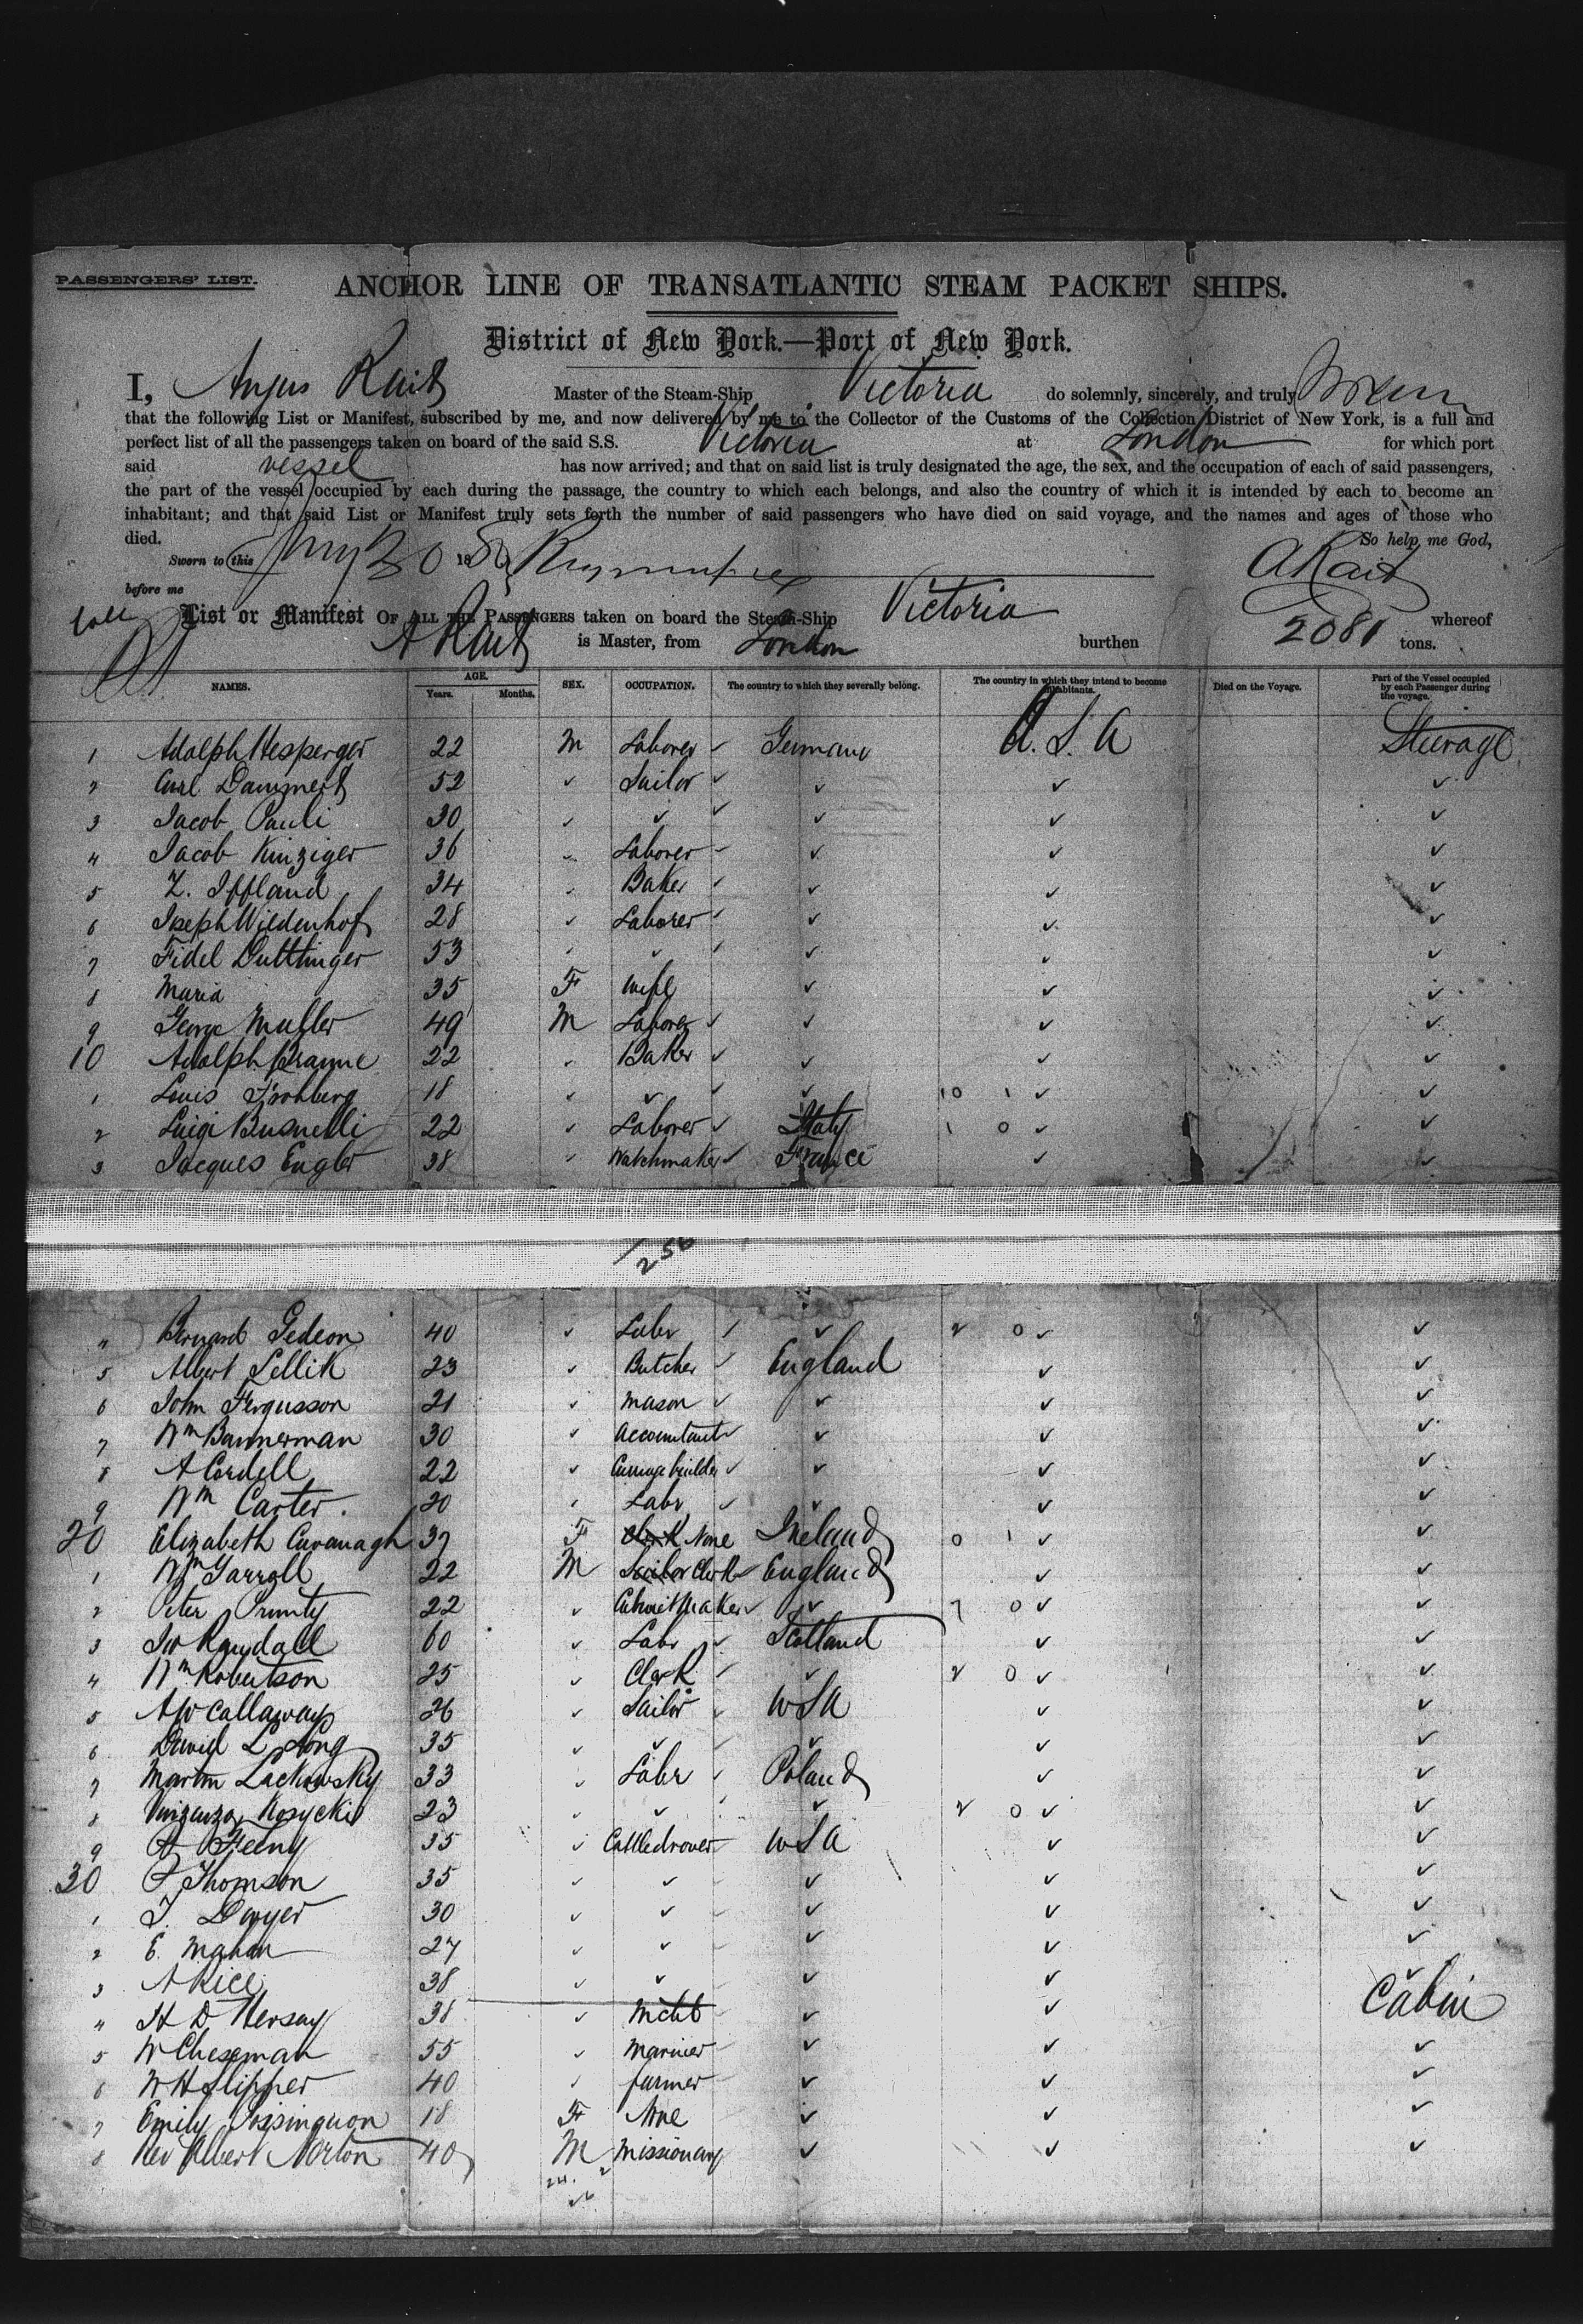 PASSENGERS' LIST.
ANCHOR LINE OF TRANSATLANTIC STEAM PACKET SHIPS.
District of New York.—Port of New York.
I, Angus Rait Master of the Steam-Ship Victoria do solemnly, sincerely, and truly
that the following List or Manifest, subscribed by me, and now delivered by me to the Collector of the Customs of the Collection District of New York, is a full and
perfect list of all the passengers taken on board of the said S.S. Victoria at London for which port
said vessel has now arrived; and that on said list is truly designated the age, the sex, and the occupation of each of said passengers,
the part of the vessel occupied by each during the passage, the country to which each belongs, and also the country of which it is intended by each to become an
inhabitant; and that said List or Manifest truly sets forth the number of said passengers who have died on said voyage, and the names and ages of those who
died. So help me God,
Sworn to this 30 188 A Rait
before me
List or Manifest OF ALL THE PASSENGERS taken on board the Steam-Ship Victoria whereof
A Rait is Master, from London burthen 2081 tons.
NAMES. AGE. Years. Months. SEX. OCCUPATION. The country to which they severally belong. The country in which they intend to become inhabitants. Died on the Voyage. Part of the Vessel occupied by each Passenger during the voyage.
1 Adolph Hesperger 22 M Laborer ✓ Germany U.S.A Steerage
2 Carl Dammert 52 ✓ Sailor ✓ ✓ ✓ ✓
3 Jacob Pauli 30 ✓ ✓ ✓ ✓ ✓ ✓
4 Jacob Kinziger 36 ✓ Laborer ✓ ✓ ✓ ✓
5 Z. Iffland 34 ✓ Baker ✓ ✓ ✓ ✓
6 Joseph Wiedenhof 28 ✓ Laborer ✓ ✓ ✓ ✓
7 Fidel Duttlinger 53 ✓ ✓ ✓ ✓ ✓ ✓
8 Maria 35 F Wife ✓ ✓ ✓
9 George Muller 49 M Laborer ✓ ✓ ✓ ✓
10 Adolph Branne 22 ✓ Baker ✓ ✓ ✓ ✓
1 Louis Frohberg 18 ✓ ✓ ✓ ✓ 10 1 ✓ ✓
2 Luigi Busnelli 22 ✓ Laborer ✓ Italy 1 0 ✓ ✓
3 Jacques Engler 38 ✓ Watchmaker ✓ France ✓ ✓
256
4 Bernard Gedeon 40 ✓ Labr ✓ ✓ 2 0 ✓ ✓
5 Albert Lellik 23 ✓ Butcher ✓ England ✓ ✓
6 John Fergusson 21 ✓ Mason ✓ ✓ ✓ ✓
7 Wm Bannerman 30 ✓ Accountant ✓ ✓ ✓ ✓
8 A Cordell 22 ✓ Carriage builder ✓ ✓ ✓ ✓
9 Wm Carter 20 ✓ Labr ✓ ✓ ✓ ✓
20 Elizabeth Cavanagh 37 F Clerk None Ireland 0 1 ✓ ✓
1 Wm Yarroll 22 M Sailor Clerk England ✓ ✓
2 Peter Prunty 22 ✓ Cabinet Maker ✓ ✓ 7 0 ✓ ✓
3 Jno Randall 60 ✓ Labr ✓ Scotland ✓ ✓
4 Wm Robertson 25 ✓ Clerk ✓ ✓ 2 0 ✓ ✓
5 A W Callaway 26 ✓ Sailor ✓ USA ✓ ✓
6 David L Long 35 ✓ ✓ ✓ ✓ ✓
7 Martin Lackowsky 33 ✓ Labr ✓ Poland ✓ ✓
8 Kosycki 23 ✓ ✓ ✓ ✓ 2 0 ✓ ✓
9 Feeny 35 ✓ Cattledrover USA ✓ ✓
30 Thomson 35 ✓ ✓ ✓ ✓ ✓
1 T. Dwyer 30 ✓ ✓ ✓ ✓ ✓
2 E. Mahan 27 ✓ ✓ ✓ ✓ ✓
3 A Rice 38 ✓ ✓ ✓ ✓ ✓
4 H D Hersay 38 ✓ Mcht ✓ ✓ Cabin
5 W Cheseman 55 ✓ Mariner ✓ ✓ ✓
6 W H Slipper 40 ✓ farmer ✓ ✓ ✓
7 Emily 18 F None ✓ ✓ ✓
8 Rev Albert Norton 40 M Missionary ✓ ✓ ✓